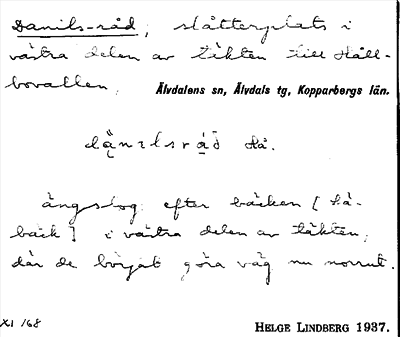 Danils-råd, slåtterplats i
västra delen av täkten till Håll-
bovallen, Älvdalens sn, Älvdals tg, Kopparbergs län.
Hå.
ängslog efter bäcken [Hå-
bäck] i västra delen av täkten,
där de börjat göra väg nu norrut.
XI 168
HELGE LINDBERG 1937.